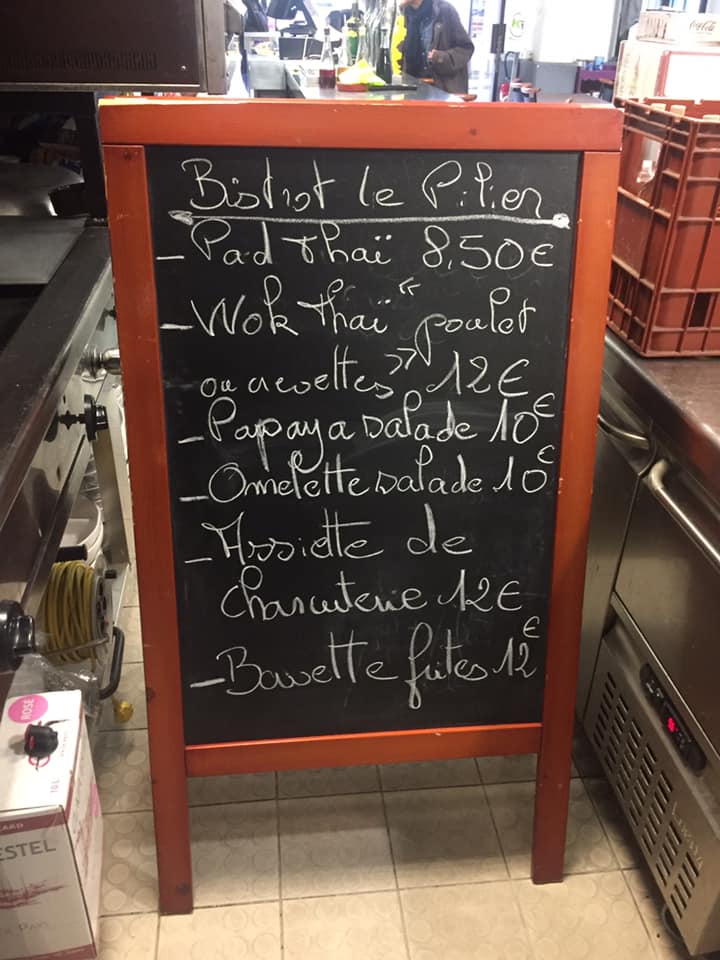 Bistrot le Pilier
- Pad thaï 8,50€
- Wok thaï "poulet
ou crevettes" 12€
- Papaya salade 10€
- Omelette salade 10€
- Assiette de
charcuterie 12€
- Bavette frites 12€
ROSÉ
10L
ESTEL
Coca-Cola